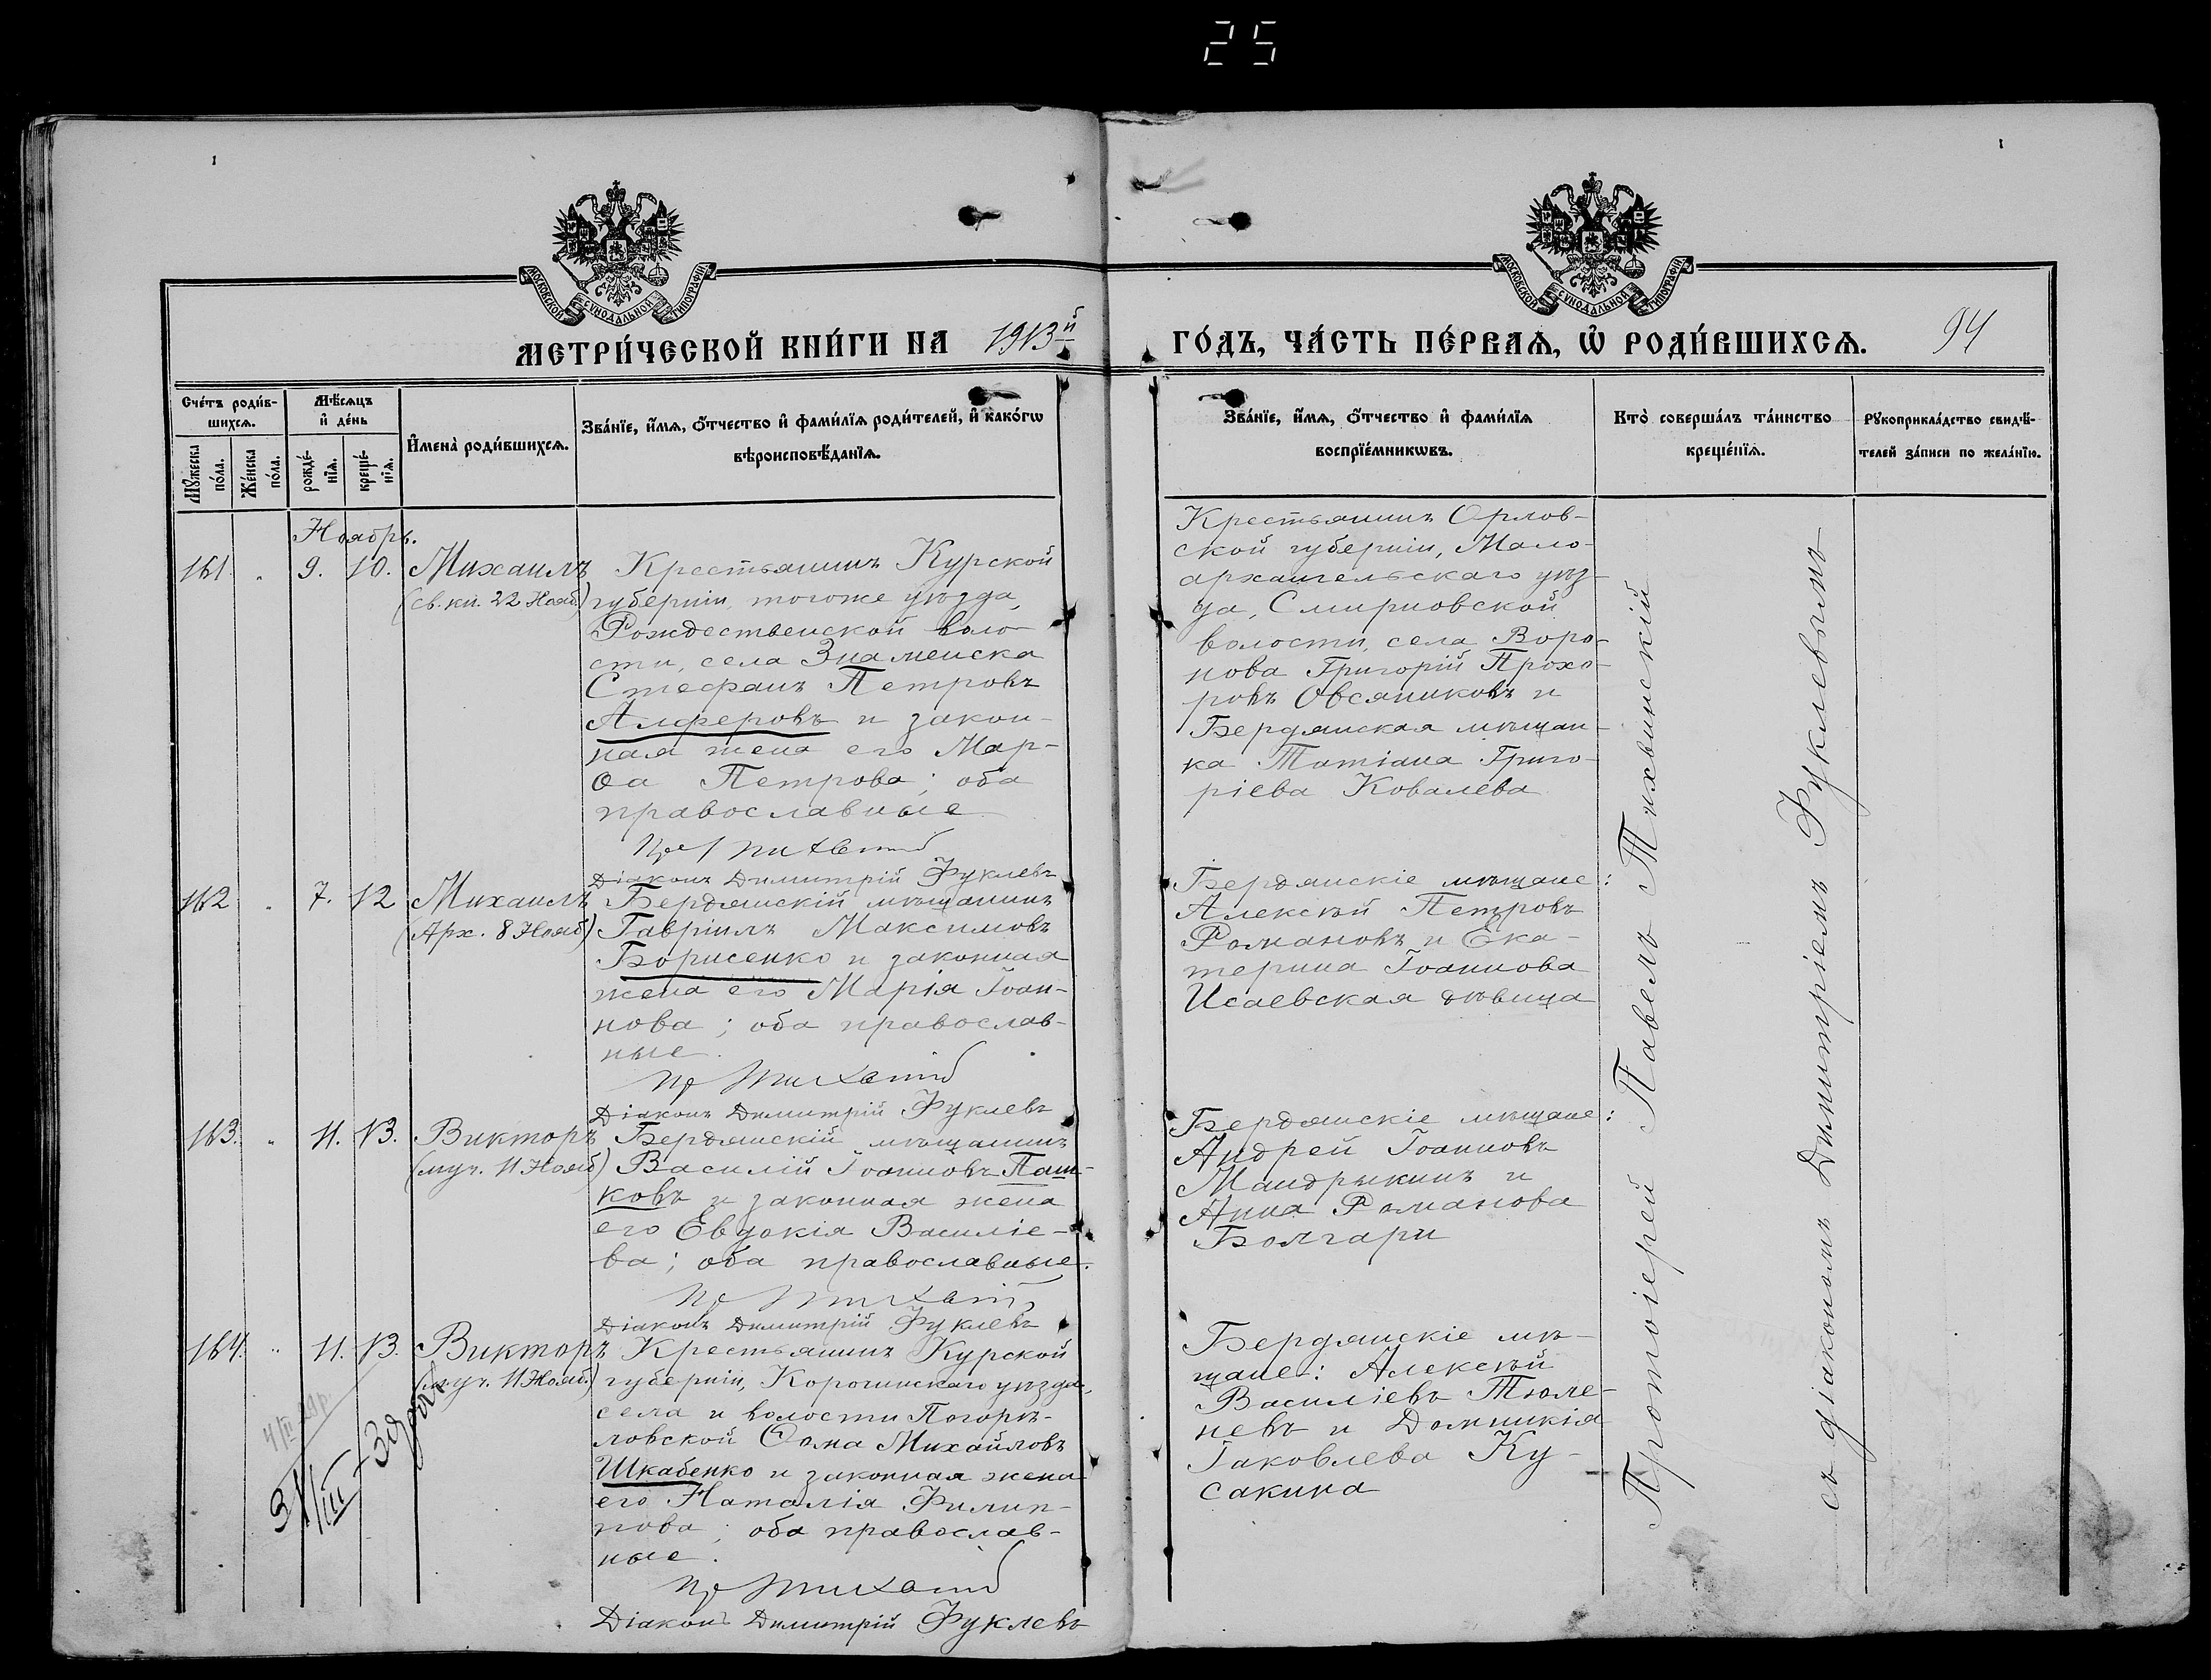 25
1
1
МОСКОВСКОЙ СѴНОДАЛЬНОЙ ТИПОГРАФІИ
МОСКОВСКОЙ СѴНОДАЛЬНОЙ ТИПОГРАФІИ
МЕТРИ́ЧЕСКОЙ КНИ́ГИ НА 1913й
ГО́ДЪ, ЧА́СТЬ ПЕ́РВАѦ, Ѡ҆ РОДИ́ВШИХСѦ. 94
Сче́тъ роди́в-
шихсѧ.
Мꙋ́жеска по́ла.
Же́нска по́ла.
Мѣ́сѧцъ
и҆ де́нь
рожде́-
нїѧ.
креще́-
нїѧ.
И҆мена̀ роди́вшихсѧ.
Зва́нїе, и҆́мѧ, ѻ҆́тчество и҆ фами́лїѧ роди́телей, и҆ како́гѡ
вѣроисповѣ́данїѧ.
Зва́нїе, и҆́мѧ, ѻ҆́тчество и҆ фами́лїѧ
воспрїе́мникѡвъ.
Кто̀ соверша́лъ та́инство
креще́нїѧ.
Рꙋкоприкла́дство свидѣ́-
телей за́писи по жела́нїю.
Ноябрь.
161. " 9. 10. Михаилъ
(св. кн. 22 Нояб.)
Крестьянинъ Курской
губерніи, тогоже уѣзда,
Рождественской воло-
сти, села Знаменска
Стефанъ Петровъ
Алферовъ и закон-
ная жена его Мар-
ѳа Петрова; оба
православные
Діаконъ Димитрій Фуклевъ
Крестьянинъ Орлов-
ской губерніи, Мало-
архангельскаго уѣз-
да, Смирновской
волости, села Воро-
нова Григорій Прохо-
ровъ Овсяниковъ и
Бердянская мѣщан-
ка Татіана Григо-
ріева Ковалева
162 " 7. 12 Михаилъ
(Арх. 8 Нояб)
Бердянскій мѣщанинъ
Гавріилъ Максимовъ
Борисенко и законная
жена его Марія Іоан-
нова; оба православ-
ные.
Діаконъ Димитрій Фуклевъ
Бердянскіе мѣщане:
Алексѣй Петровъ
Романовъ и Ека-
терина Іоаннова
Исаевская дѣвица
163. " 11. 13. Викторъ
(муч. 11 Нояб)
Бердянскій мѣщанинъ
Василій Іоанновъ Паш-
ковъ и законная жена
его Евдокія Василіе-
ва; оба православные.
Діаконъ Димитрій Фуклевъ
Бердянскіе мѣщане:
Андрей Іоанновъ
Мандрыкинъ и
Анна Романова
Болгари
164. " 11. 13. Викторъ
(муч. 11 Нояб.)
Крестьянинъ Курской
губерніи, Корочинскаго уѣзда,
села и волости Погорѣ-
ловской Ѳома Михайловъ
Шкабенко и законная жена
его Наталія Филип-
пова; оба православ-
ные.
Діаконъ Димитрій Фуклевъ
Бердянскіе мѣ-
щане: Алексѣй
Василіевъ Тюле-
невъ и Домникія
Іаковлева Ку-
сакина
Протоіерей Павелъ Тихвинскій
съ діакономъ Димитріемъ Фуклевымъ